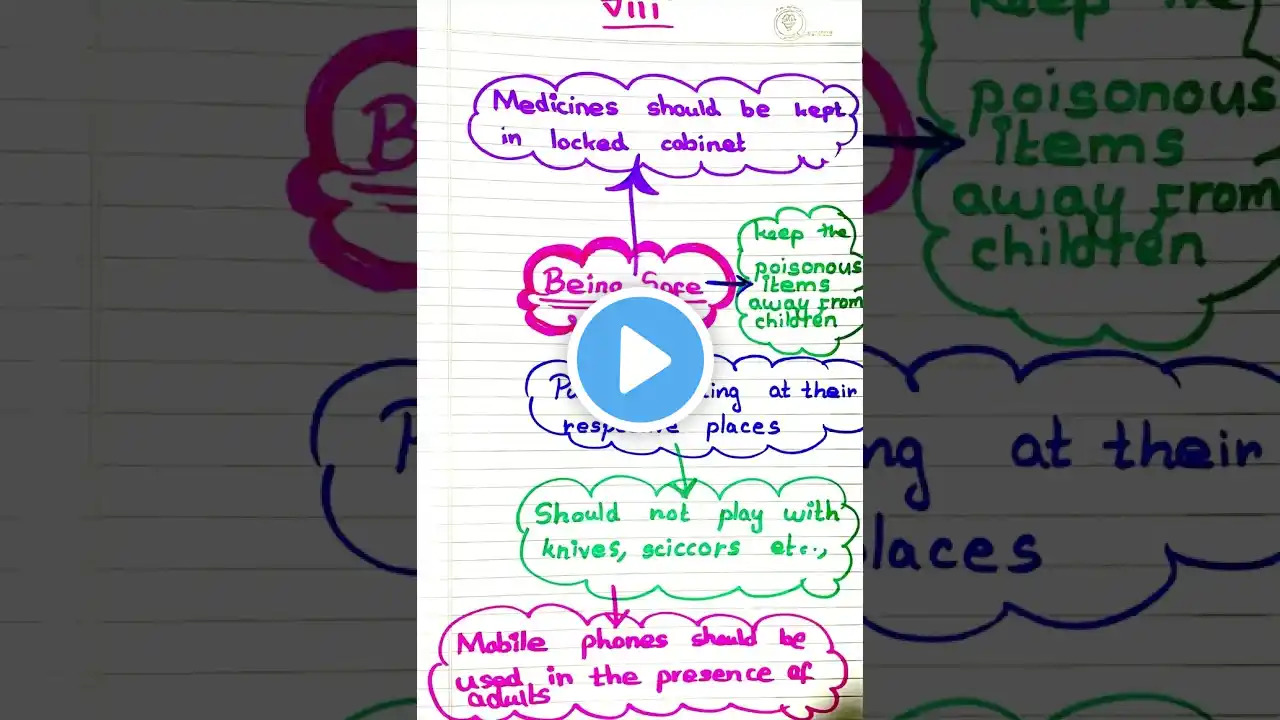 VIII
Medicines should be kept
in locked cabinet
Being Safe
keep the
poisonous
items
away from
children
at their
places
Should not play with
knives, sciccors etc..,
Mobile phones should be
used in the presence of
adults